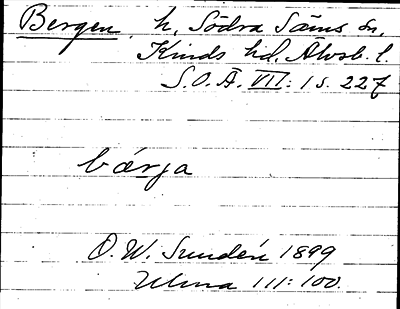 Bergen, h, Södra Säms sn,
Kinds hd. Älvsb. l.
S.O.Ä. VII: 1 s. 227
bärja
O. W. Sundén 1899
Ulma 111: 100.